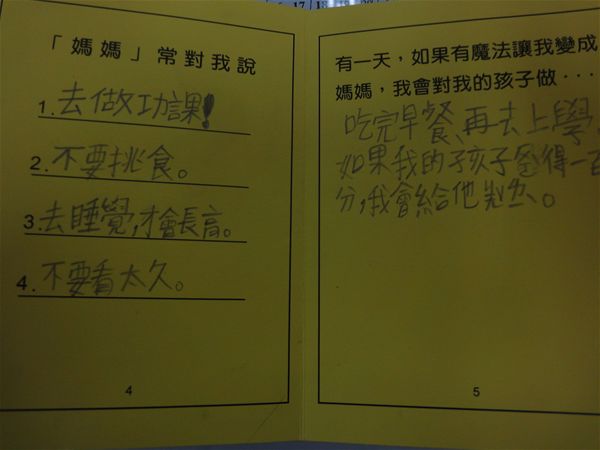 17 18 19
「媽媽」常對我說
1.去做功課!
2.不要挑食。
3.去睡覺,才會長高。
4.不要看太久。
4
有一天,如果有魔法讓我變成
媽媽,我會對我的孩子做...
吃完早餐、再去上學,
如果我的孩子得一百
分,我會給他。
5